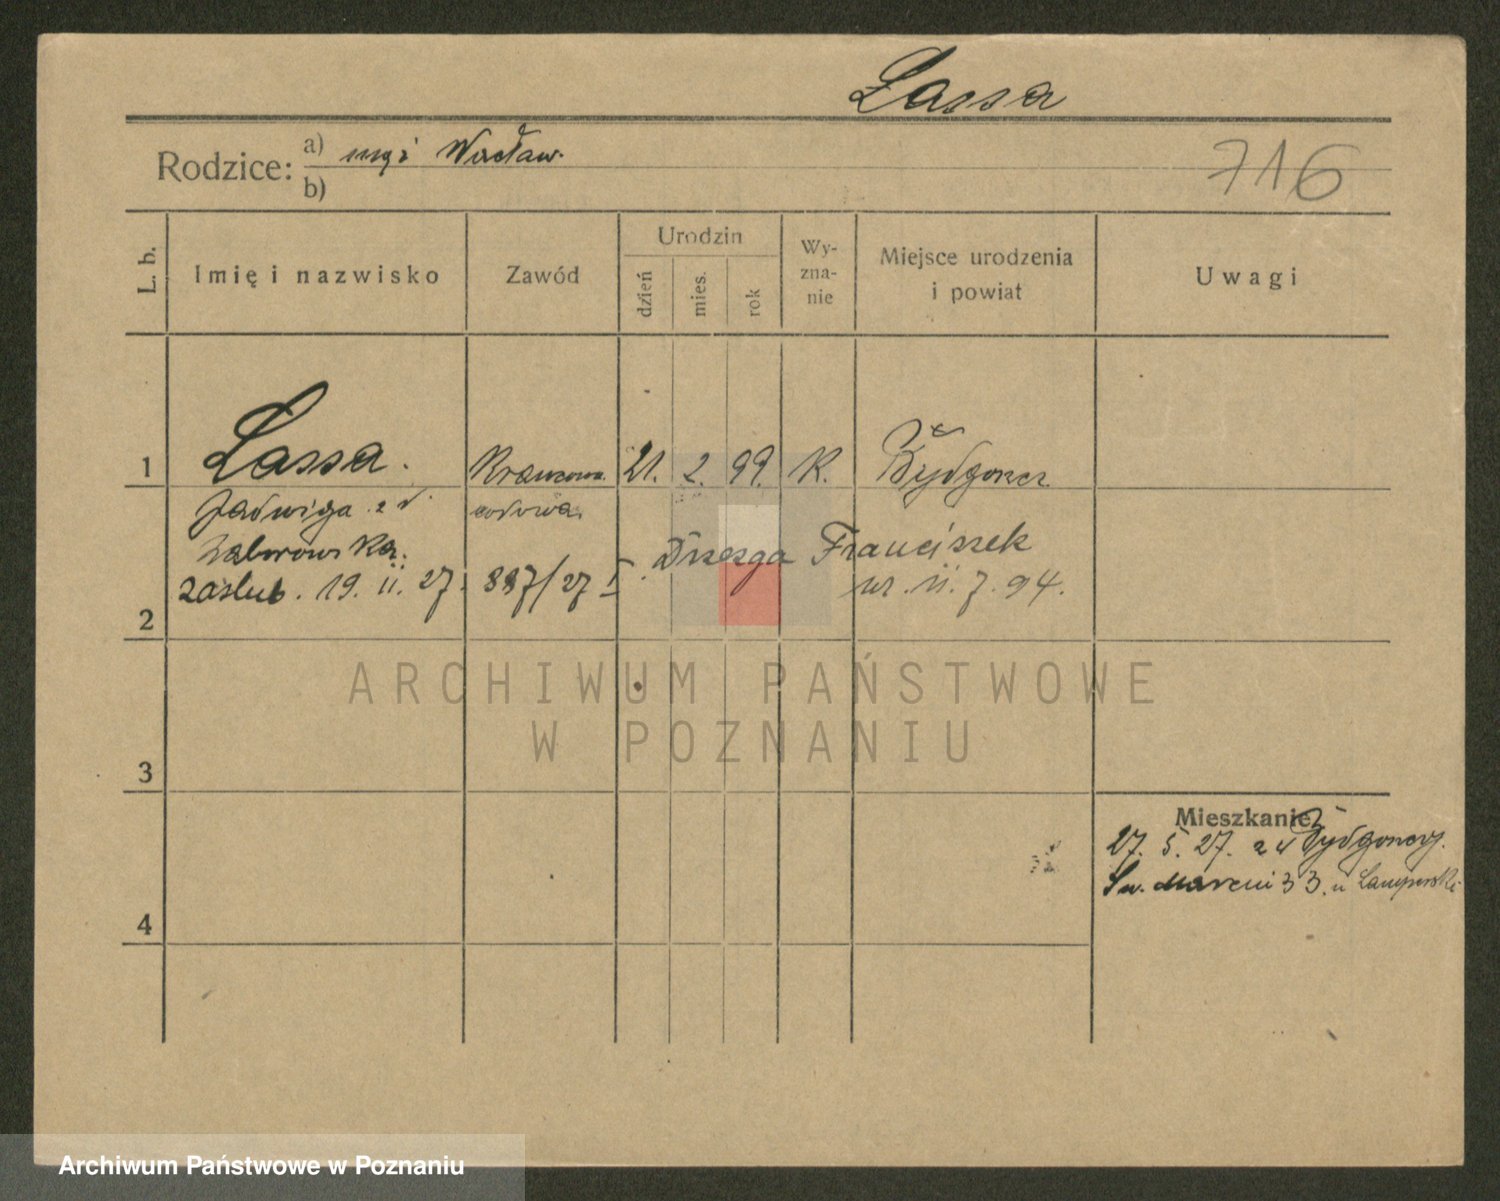 Lassa
Rodzice: a) mąż Wacław.
b)
716
L. b.
Imię i nazwisko
Zawód
Urodzin
dzień
mies.
rok
Wy-
zna-
nie
Miejsce urodzenia
i powiat
Uwagi
1
Lassa.
Krawcowa
21. 2. 99. K.
Bydgoszcz
Jadwiga z d.
wdowa.
Zaborowska.
Drzezga Franciszek
zaślub. 19. II. 27. 887/27 I.
ur. 11. 7. 94.
2
ARCHIWUM PAŃSTWOWE
W POZNANIU
3
Mieszkanie
27. 5. 27. z Bydgoszczy.
Św. Marcin 33. u
4
Archiwum Państwowe w Poznaniu